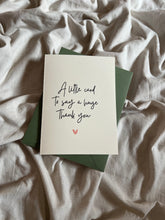 A little card
to say a huge
Thank you